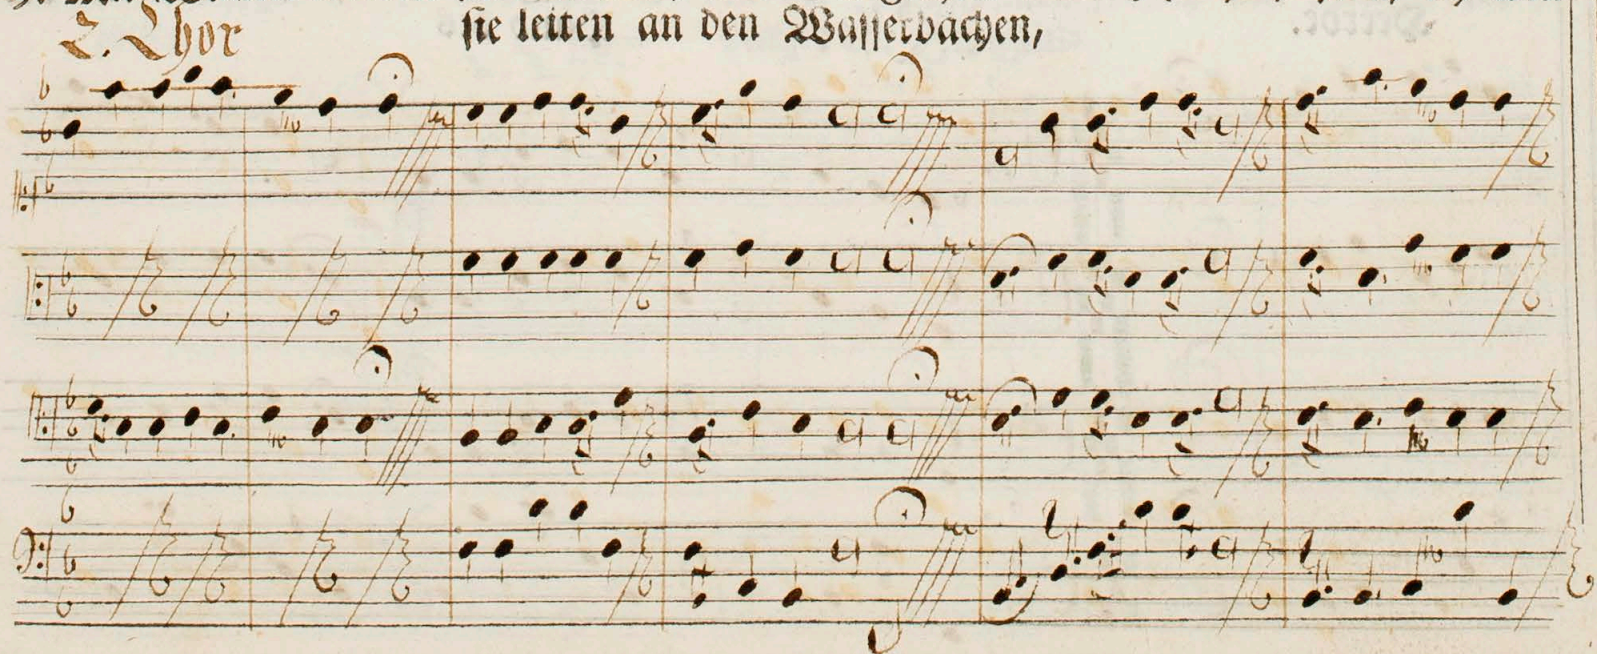 2. Chor
sie leiten an den Wasserbächen,